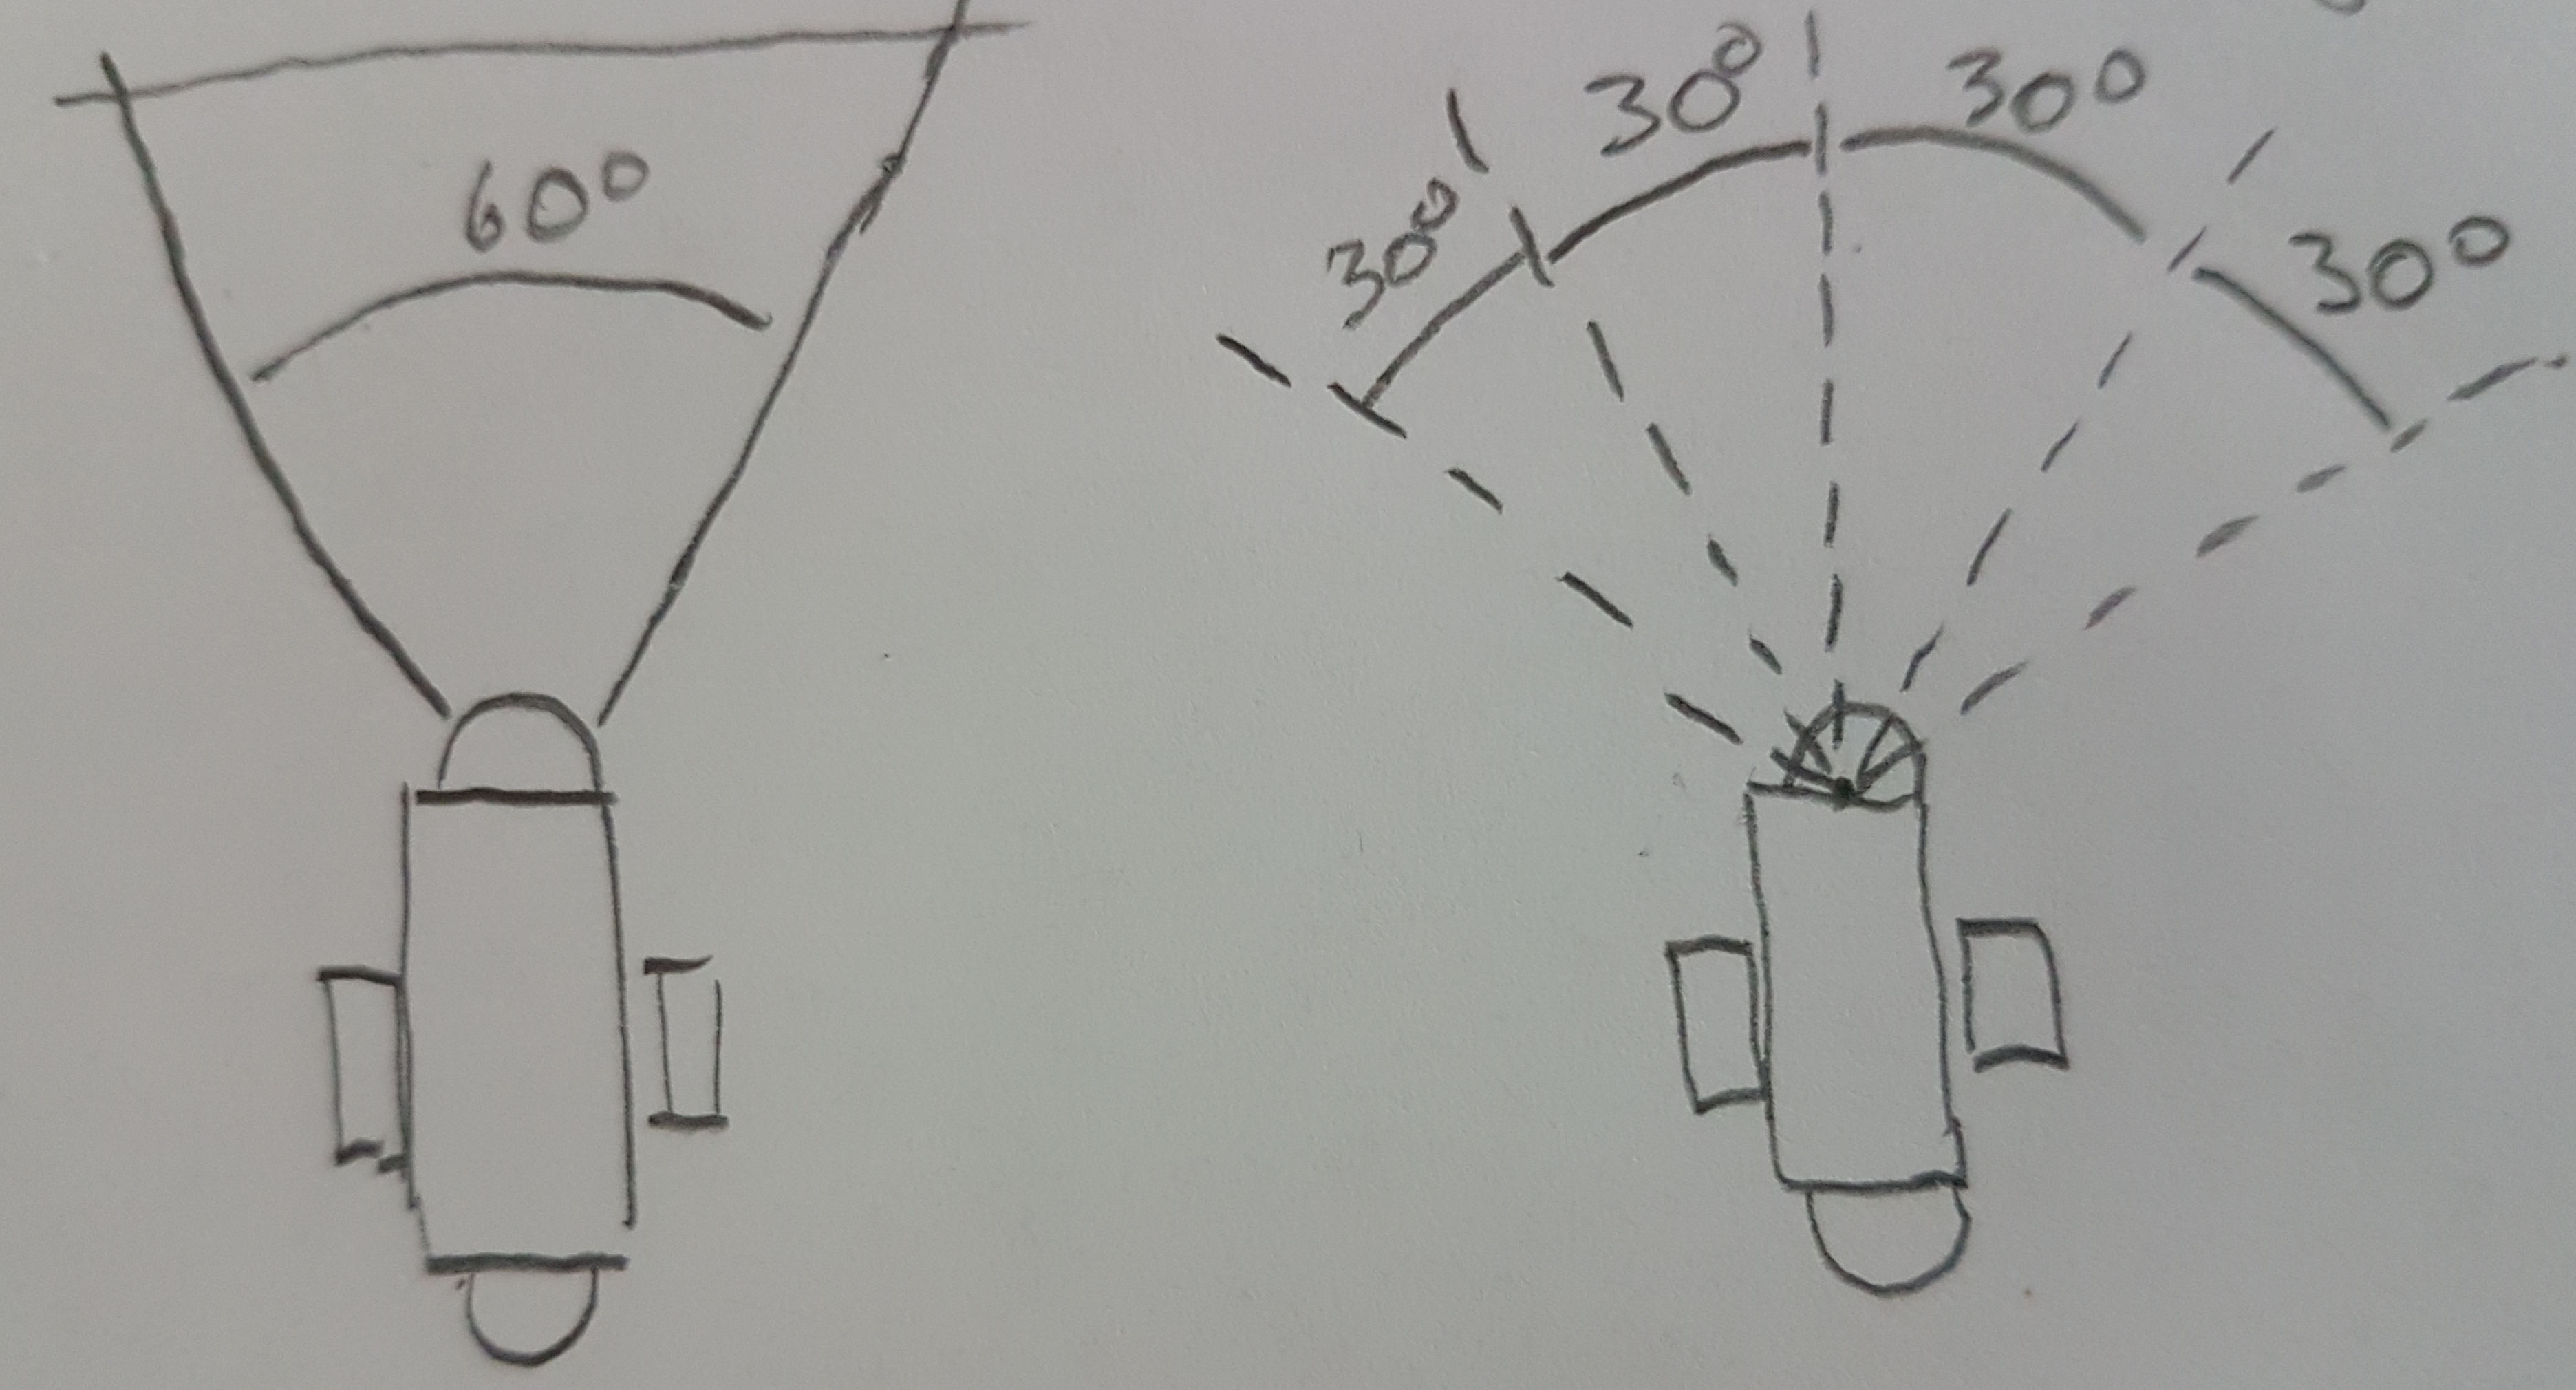 60°
30°
30°
30°
30°